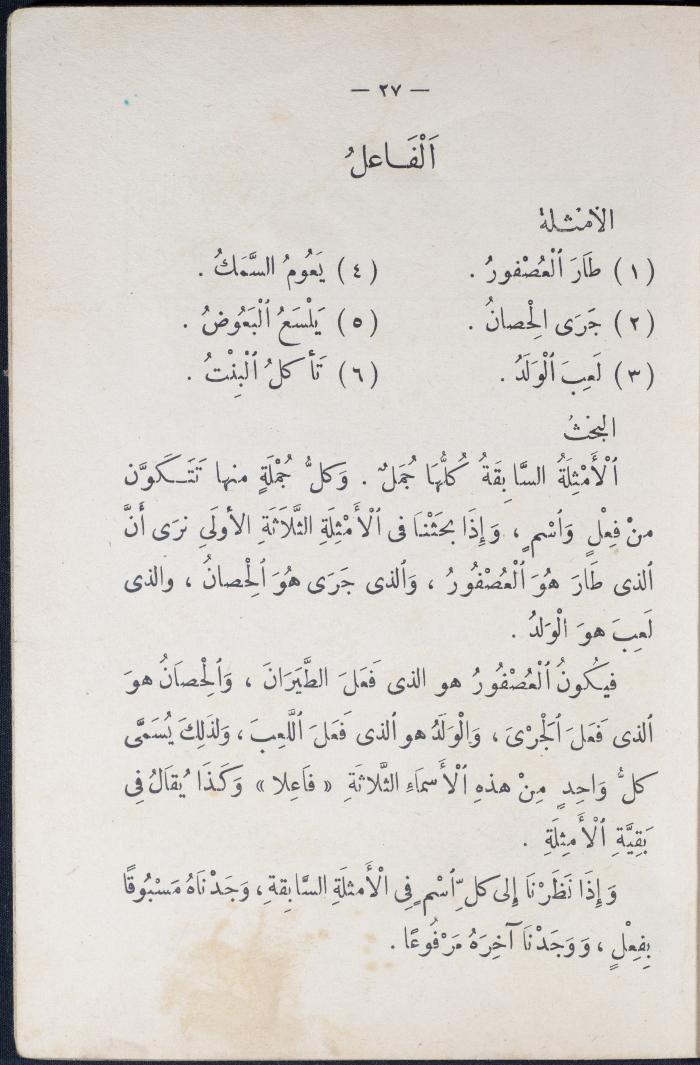 — ٢٧ —
اَلْفَاعلُ
الأمثلة
(١) طَارَ ٱلْعُصْفورُ . (٤) يَعُومُ السَّمَكُ .
(٢) جَرَى الْحِصانُ . (٥) يَلْسَعُ ٱلْبَعُوضُ .
(٣) لَعِبَ ٱلْوَلَدُ . (٦) تَأكلُ ٱلْبِنْتُ .
البحثُ
ٱلْأَمْثِلَةُ السَّابِقَةُ كُلُّهَا جُمَلٌ . وَكلُّ جُمْلَةٍ منها تَتَكَوَّن
منْ فِعْلٍ وَٱسْمٍ ، وَإِذَا بحَثْنَا فى ٱلْأَمْثِلَةِ الثَّلَاثَةِ الأولَى نرَى أَنَّ
ٱلذى طَارَ هُوَ ٱلْعُصْفُورُ ، وَٱلذى جَرَى هُوَ ٱلْحِصانُ ، والذى
لَعِبَ هوَ الْوَلَدُ .
فيكُونُ ٱلْعُصْفُورُ هو الذى فَعَلَ الطَّيَرَانَ ، وَٱلْحِصَانُ هوَ
ٱلذى فَعَلَ ٱلْجَرْىَ ، وَالْوَلَدُ هو ٱلذى فَعَلَ ٱللَّعِبَ ، وَلذلِكَ يُسَمَّى
كلُّ وَاحِدٍ مِنْ هذهِ ٱلْأَسمَاءِ الثَّلاثَةِ « فاَعِلا » وَكَذَا يُقالُ فِى
بَقِيَّةِ ٱلْأَمثِلَةِ .
وَإِذَا نَظَرْنَا إِلى كلِّ ٱسْمٍ فِى الْأَمثلَةِ السَّابِقةِ ، وَجَدْنَاهُ مَسْبُوقًا
بِفِعْلٍ ، وَوَجَدْنَا آخِرَهُ مَرْفُوعًا .